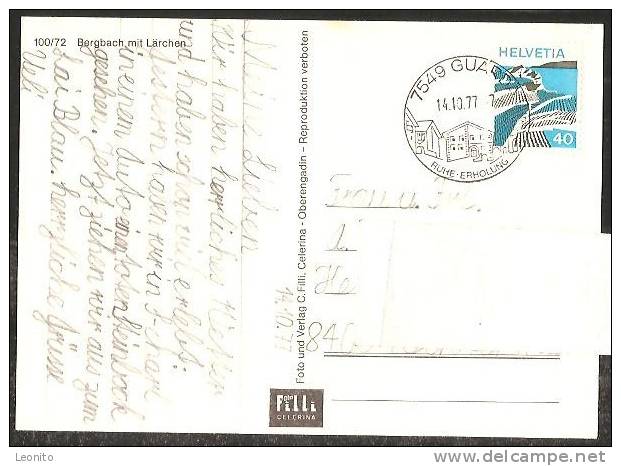 100/72 Bergbach mit Lärchen
Meine Lieben
Wir haben herrliches
und haben schon viel erlebt.
Gestern haben wir in
in einem Auto einen Steinbock
gesehen. Jetzt ziehen wir aus zum
Lai Blau. Herzliche Grüsse
Ueli
14.10.77
Foto und Verlag C. Filli, Celerina - Oberengadin - Reproduktion verboten
foto
Filli
CELERINA
HELVETIA
40
7549 GUARDA
14.10.77 -7
RUHE·ERHOLUNG
Frau u.
He
84
Leonito
www.delcampe.net